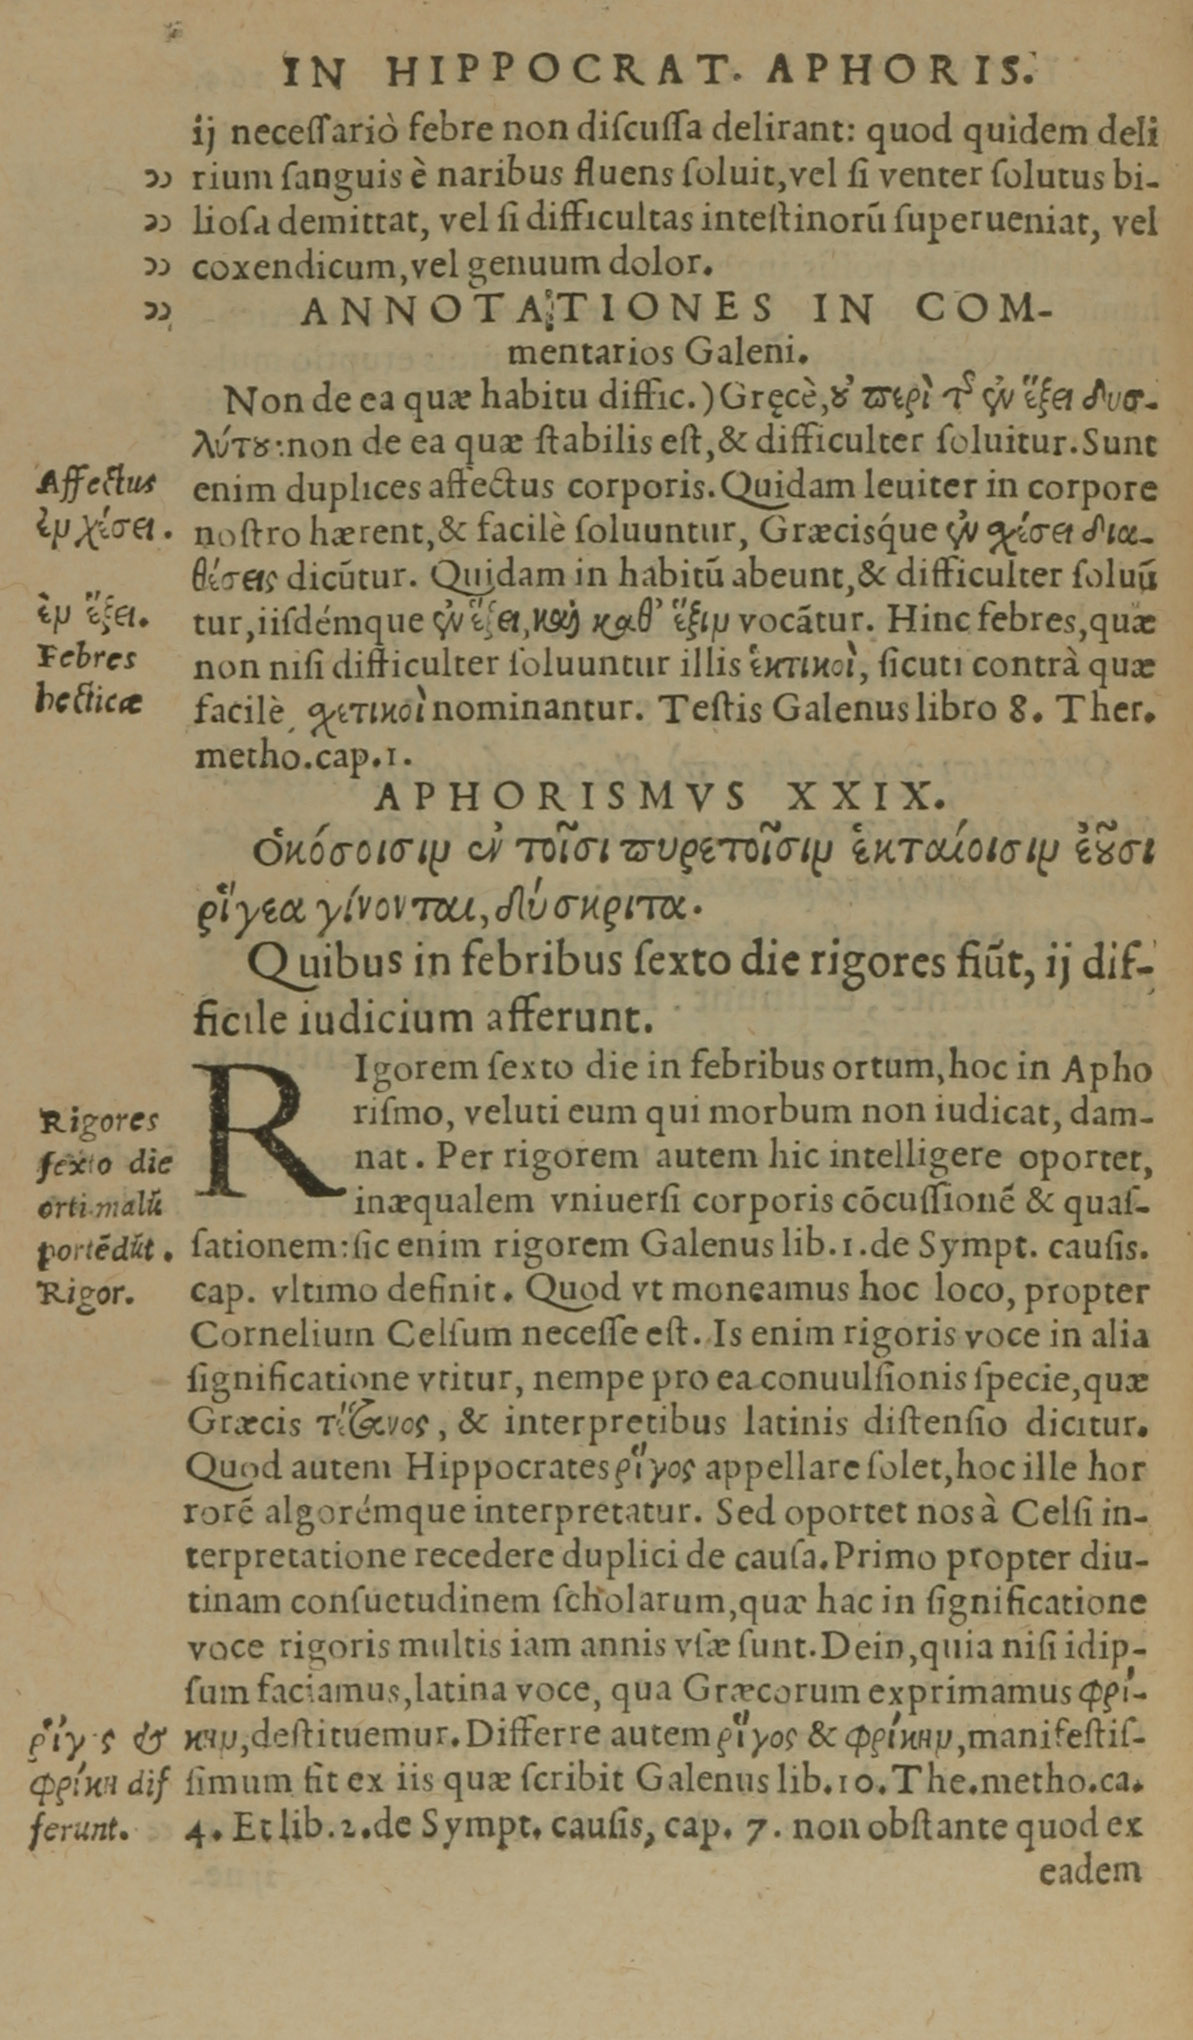 IN HIPPOCRAT. APHORIS.
ij neceſſariò febre non diſcuſſa delirant: quod quidem deli
ɔɔ rium ſanguis è naribus fluens ſoluit, vel ſi venter ſolutus bi-
ɔɔ lioſa demittat, vel ſi difficultas inteſtinorũ ſuperueniat, vel
ɔɔ coxendicum, vel genuum dolor.
ɔɔ ANNOTATIONES IN COM-
mentarios Galeni.
Non de ea quæ habitu diffic.) Gręcè, ȣ̓ ϖερὶ τ͂ ἐν ἕξει δυσ-
λύτȣ: non de ea quæ ſtabilis eſt, & difficulter ſoluitur. Sunt
Affectus
enim duplices affectus corporis. Quidam leuiter in corpore
ἐν χέσει.
noſtro hærent, & facilè ſoluuntur, Græcisq́ue ἐν χέσει δια-
θέσεις dicũtur. Quidam in habitũ abeunt, & difficulter ſoluũ
ἐν ἕξει.
tur, iiſdémque ἐν ἕξει, καὶ καθ’ ἕξιν vocãtur. Hinc febres, quæ
Febres
non niſi difficulter ſoluuntur illis ἑκτικοὶ, ſicuti contrà quæ
hecticæ
facilè χετικοὶ nominantur. Teſtis Galenus libro 8. Ther.
metho. cap. 1.
APHORISMVS XXIX.
Ὁκόσοισιν ἐν τοῖσι ϖυρετοῖσιν ἑκταίοισιν ἐȣ͂σι
ῥίγεα γίνονται, δύσκριτα.
Quibus in febribus ſexto die rigores fiũt, ij dif-
ficile iudicium afferunt.
RIgorem ſexto die in febribus ortum, hoc in Apho
Rigores
riſmo, veluti eum qui morbum non iudicat, dam-
ſexto die
nat. Per rigorem autem hic intelligere oportet,
orti malũ
inæqualem vniuerſi corporis cõcuſſionẽ & quaſ-
portẽdũt.
ſationem: ſic enim rigorem Galenus lib. 1. de Sympt. cauſis.
Rigor.
cap. vltimo definit. Quod vt moneamus hoc loco, propter
Cornelium Celſum neceſſe eſt. Is enim rigoris voce in alia
ſignificatione vtitur, nempe pro ea conuulſionis ſpecie, quæ
Græcis τέτανος, & interpretibus latinis diſtenſio dicitur.
Quod autem Hippocrates ῥίγος appellare ſolet, hoc ille hor
rorẽ algorémque interpretatur. Sed oportet nos à Celſi in-
terpretatione recedere duplici de cauſa. Primo propter diu-
tinam conſuetudinem ſcholarum, quæ hac in ſignificatione
voce rigoris multis iam annis vſæ ſunt. Dein, quia niſi idip-
ſum faciamus, latina voce, qua Græcorum exprimamus φρί-
ῥίγος &
κην, deſtituemur. Differre autem ῥίγος & φρίκην, manifeſtiſ-
φρίκη dif
ſimum fit ex iis quæ ſcribit Galenus lib. 10. The. metho. ca.
ferunt.
4. Et lib. 2. de Sympt. cauſis, cap. 7. non obſtante quod ex
eadem